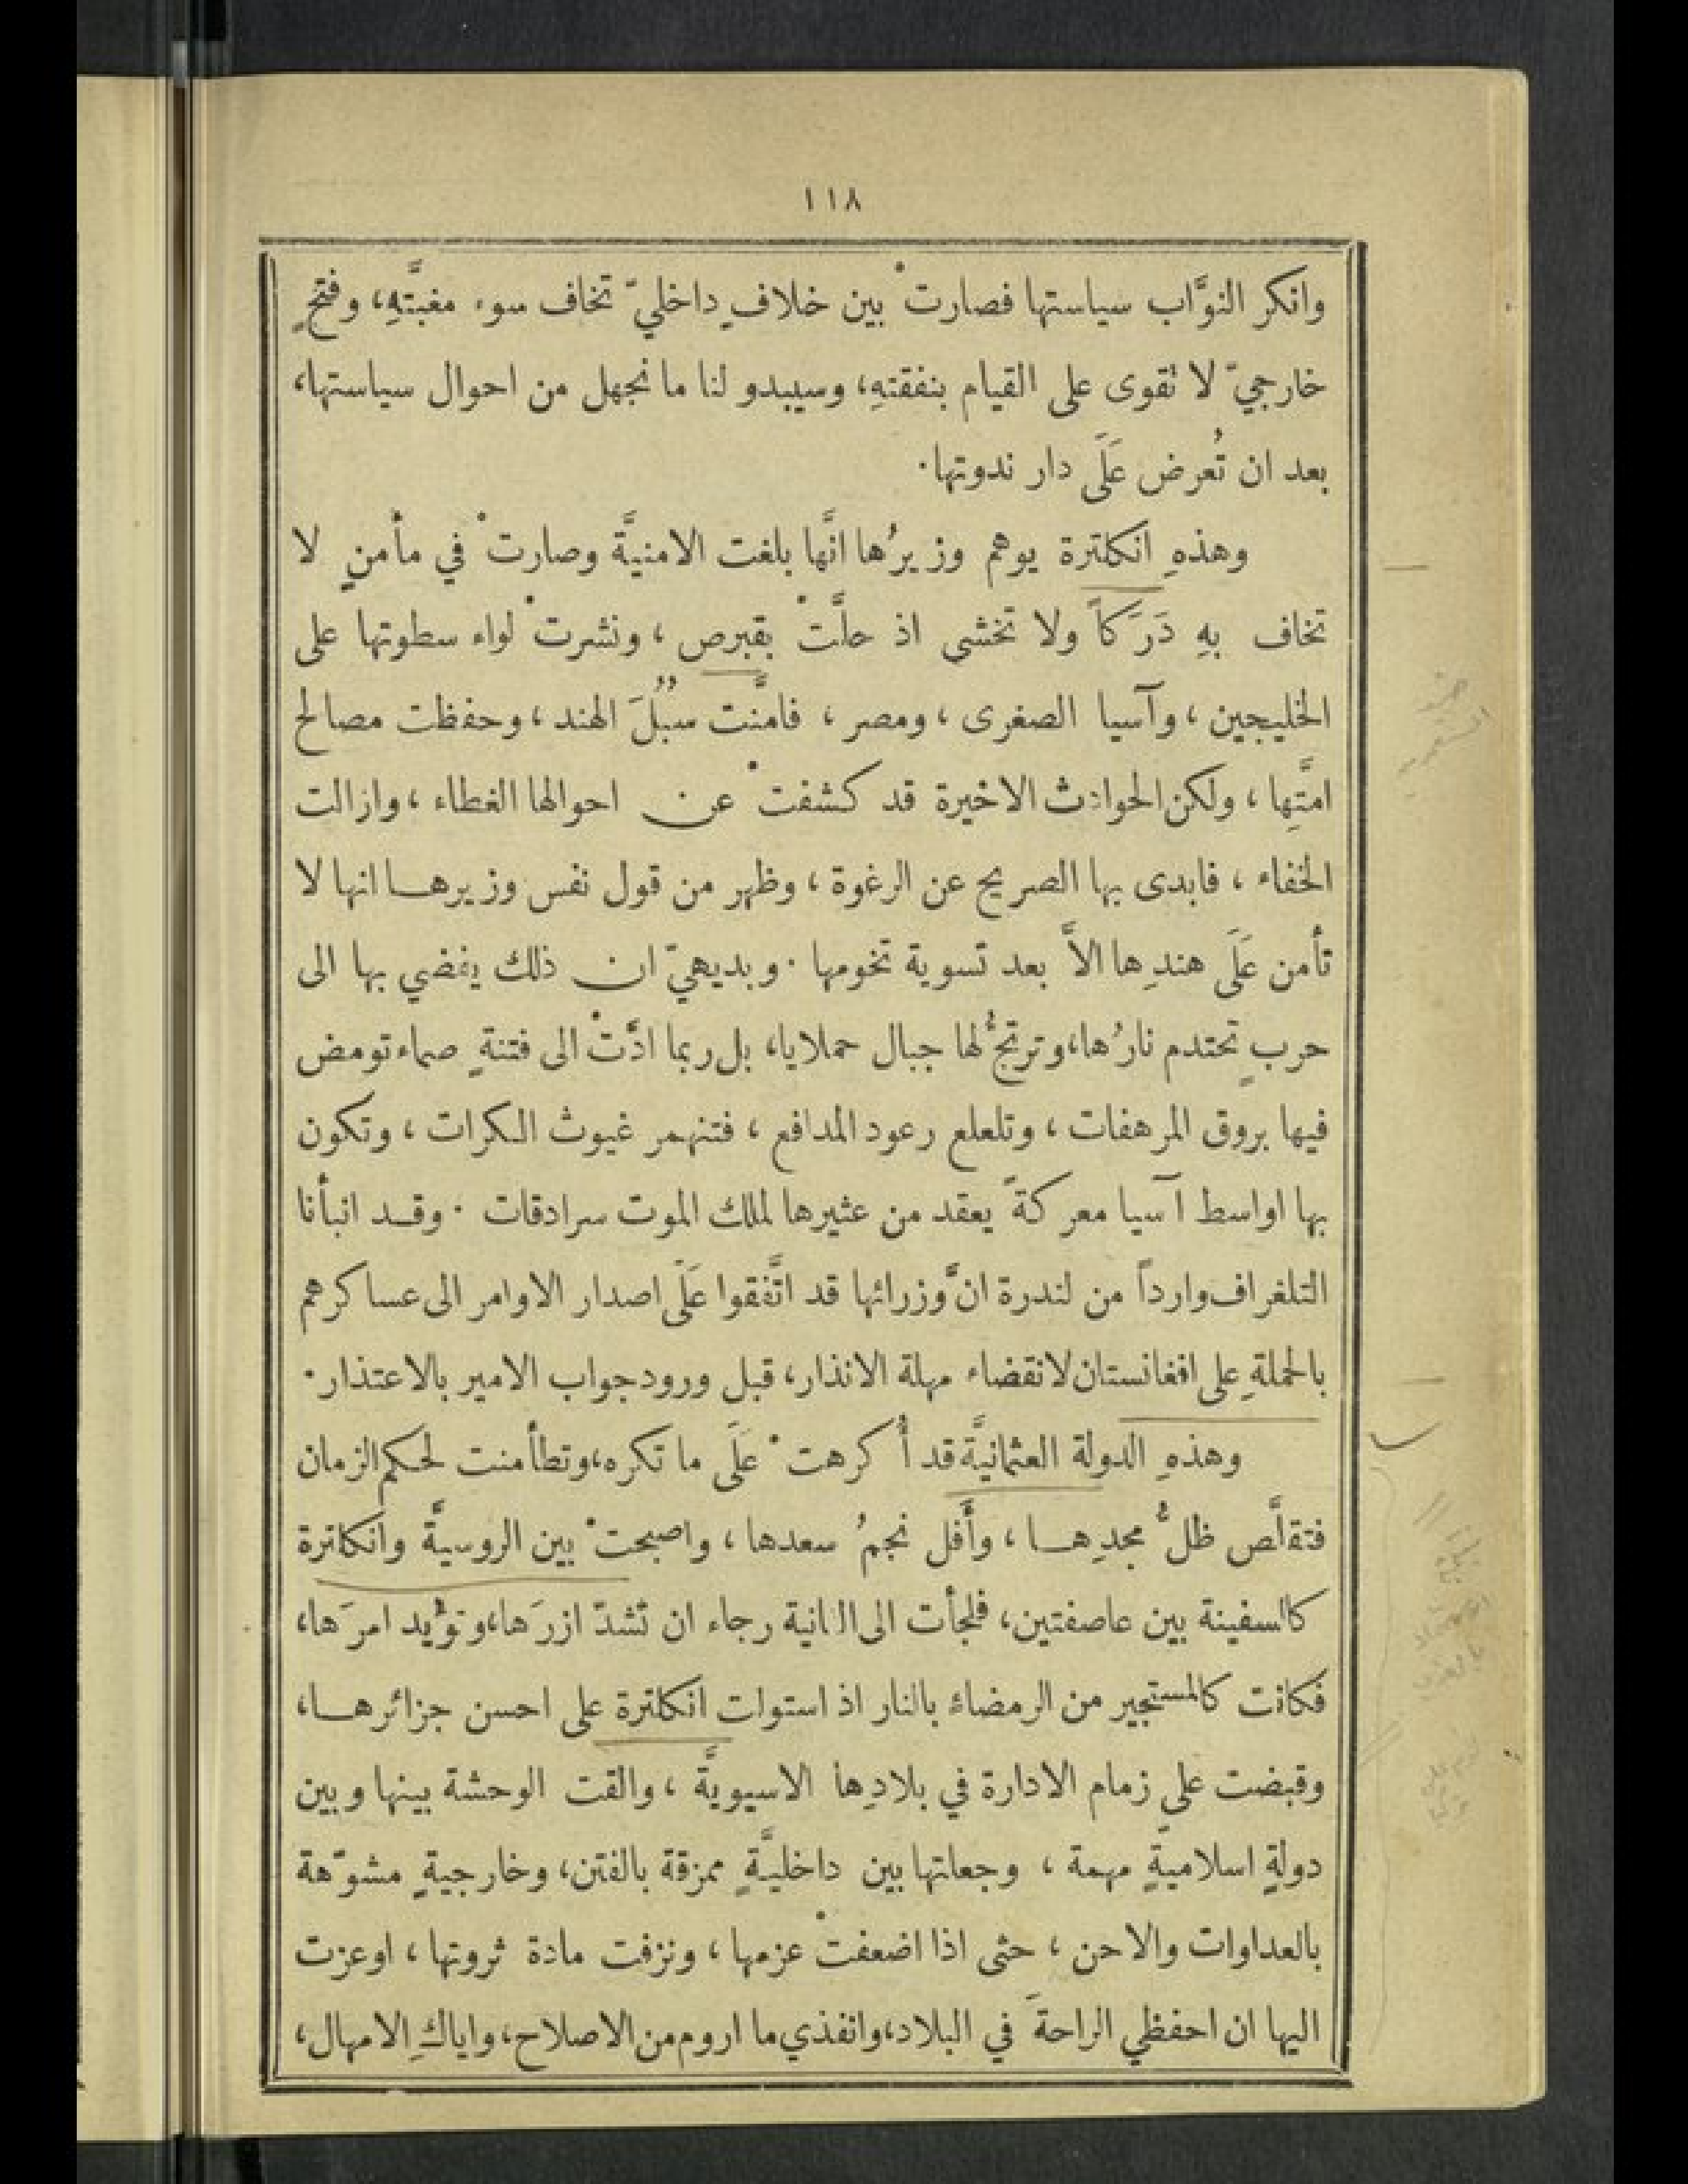 ١١٨
وانكر النوَّاب سياستها فصارتْ بين خلافٍ داخليّ تخاف سوء مغبَّتهِ، وفتحٍ
خارجيّ لا تقوى على القيام بنفقتهِ، وسيبدو لنا ما نجهل من احوال سياستها،
بعد ان تُعرض عَلَى دار ندوتها.
وهذهِ انكلترة يوهم وزيرُها انَّها بلغت الامنيَّة وصارتْ في مأمنٍ لا
تخاف بهِ دَرَكاً ولا تخشى اذ حلَّتْ بقبرص، ونشرتْ لواء سطوتها على
الخليجين، وآسيا الصغرى، ومصر، فامَّنت سُبُلَ الهند، وحفظت مصالح
امَّتِها، ولكن الحوادث الاخيرة قد كشفتْ عن احوالها الغطاء، وازالت
الخفاء، فابدى بها الصريح عن الرغوة، وظهر من قول نفس وزيرها انها لا
تأمن عَلَى هندِها الاَّ بعد تسوية تخومها. وبديهيّ ان ذلك يفضي بها الى
حربٍ تحتدم نارُها، وترتجُّ لها جبال حملايا، بل ربما ادَّتْ الى فتنةٍ صماء تومض
فيها بروق المرهفات، وتلعلع رعود المدافع، فتنهمر غيوث الكرات، وتكون
بها اواسط آسيا معركةً يعقد من عثيرها لملك الموت سرادقات. وقد انبأنا
التلغراف وارداً من لندرة انَّ وزرائها قد اتَّفقوا عَلَى اصدار الاوامر الى عساكرهم
بالحملةِ على افغانستان لانقضاء مهلة الانذار، قبل ورود جواب الامير بالاعتذار.
وهذهِ الدولة العثمانيَّة قد أُكرهتْ عَلَى ما تكره، وتطأمنت لحكم الزمان
فتقلَّص ظلُّ مجدِها، وأَفل نجمُ سعدها، واصبحتْ بين الروسيَّة وانكلترة
كالسفينة بين عاصفتين، فلجأت الى الثانية رجاء ان تشدّ ازرَها، وتؤَيد امرَها،
فكانت كالمستجير من الرمضاء بالنار اذ استولت انكلترة على احسن جزائرها،
وقبضت على زمام الادارة في بلادِها الاسيويَّة، والقت الوحشة بينها وبين
دولةٍ اسلاميةٍ مهمة، وجعلتها بين داخليَّةٍ ممزقة بالفتن، وخارجيةٍ مشوّهة
بالعداوات والاحن، حتى اذا اضعفتْ عزمها، ونزفت مادة ثروتها، اوعزت
اليها ان احفظي الراحةَ في البلاد، وانفذي ما اروم من الاصلاح، واياكِ الامهال،